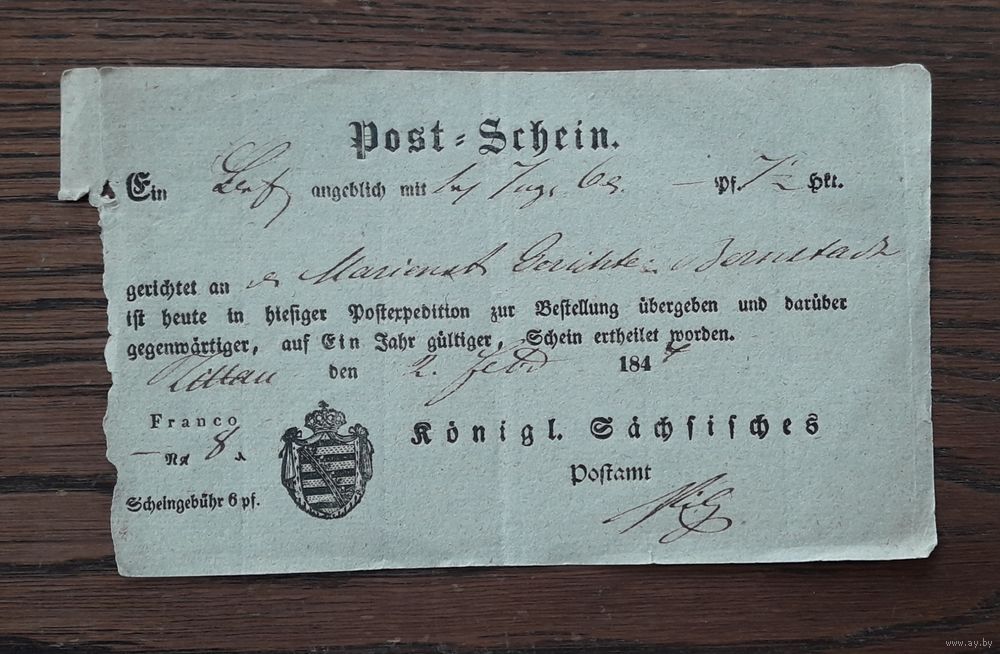 Post-Schein.
Ein angeblich mit Pf. Hkt.
gerichtet an Gerichte Bernstadt
ist heute in hiesiger Postexpedition zur Bestellung übergeben und darüber
gegenwärtiger, auf Ein Jahr gültiger, Schein ertheilet worden.
Zittau den 2. Febr 184
Franco
8
Königl. Sächsisches
Postamt
Scheingebühr 6 pf.
www.ay.by